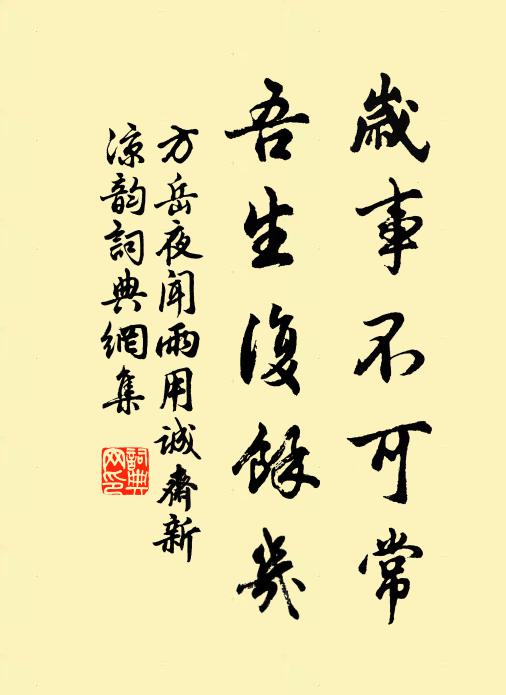 歲事不可常
吾生復餘幾
方岳夜闻雨用誠齋新
涼韵詞典網集
詞典网印